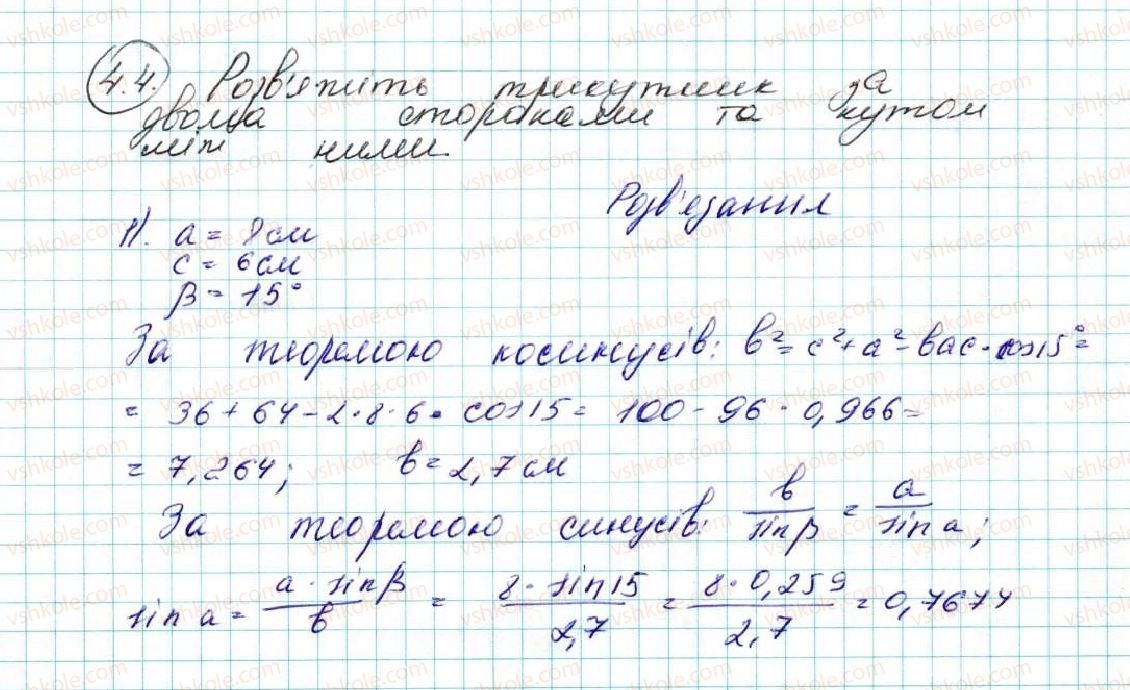 4.4. Розв'яжіть трикутник за
двома сторонами та кутом
між ними.
Розв'язання
1). a = 8 см
c = 6 см
β = 15°
За теоремою косинусів: b² = c² + a² - вac · cos15° =
= 36 + 64 - 2 · 8 · 6 · cos15 = 100 - 96 · 0,966 =
= 7,264; b = 2,7 см
За теоремою синусів: b/sinβ = a/sin a;
sin a = a · sinβ/b = 8 · sin15/2,7 = 8 · 0,259/2,7 = 0,7674